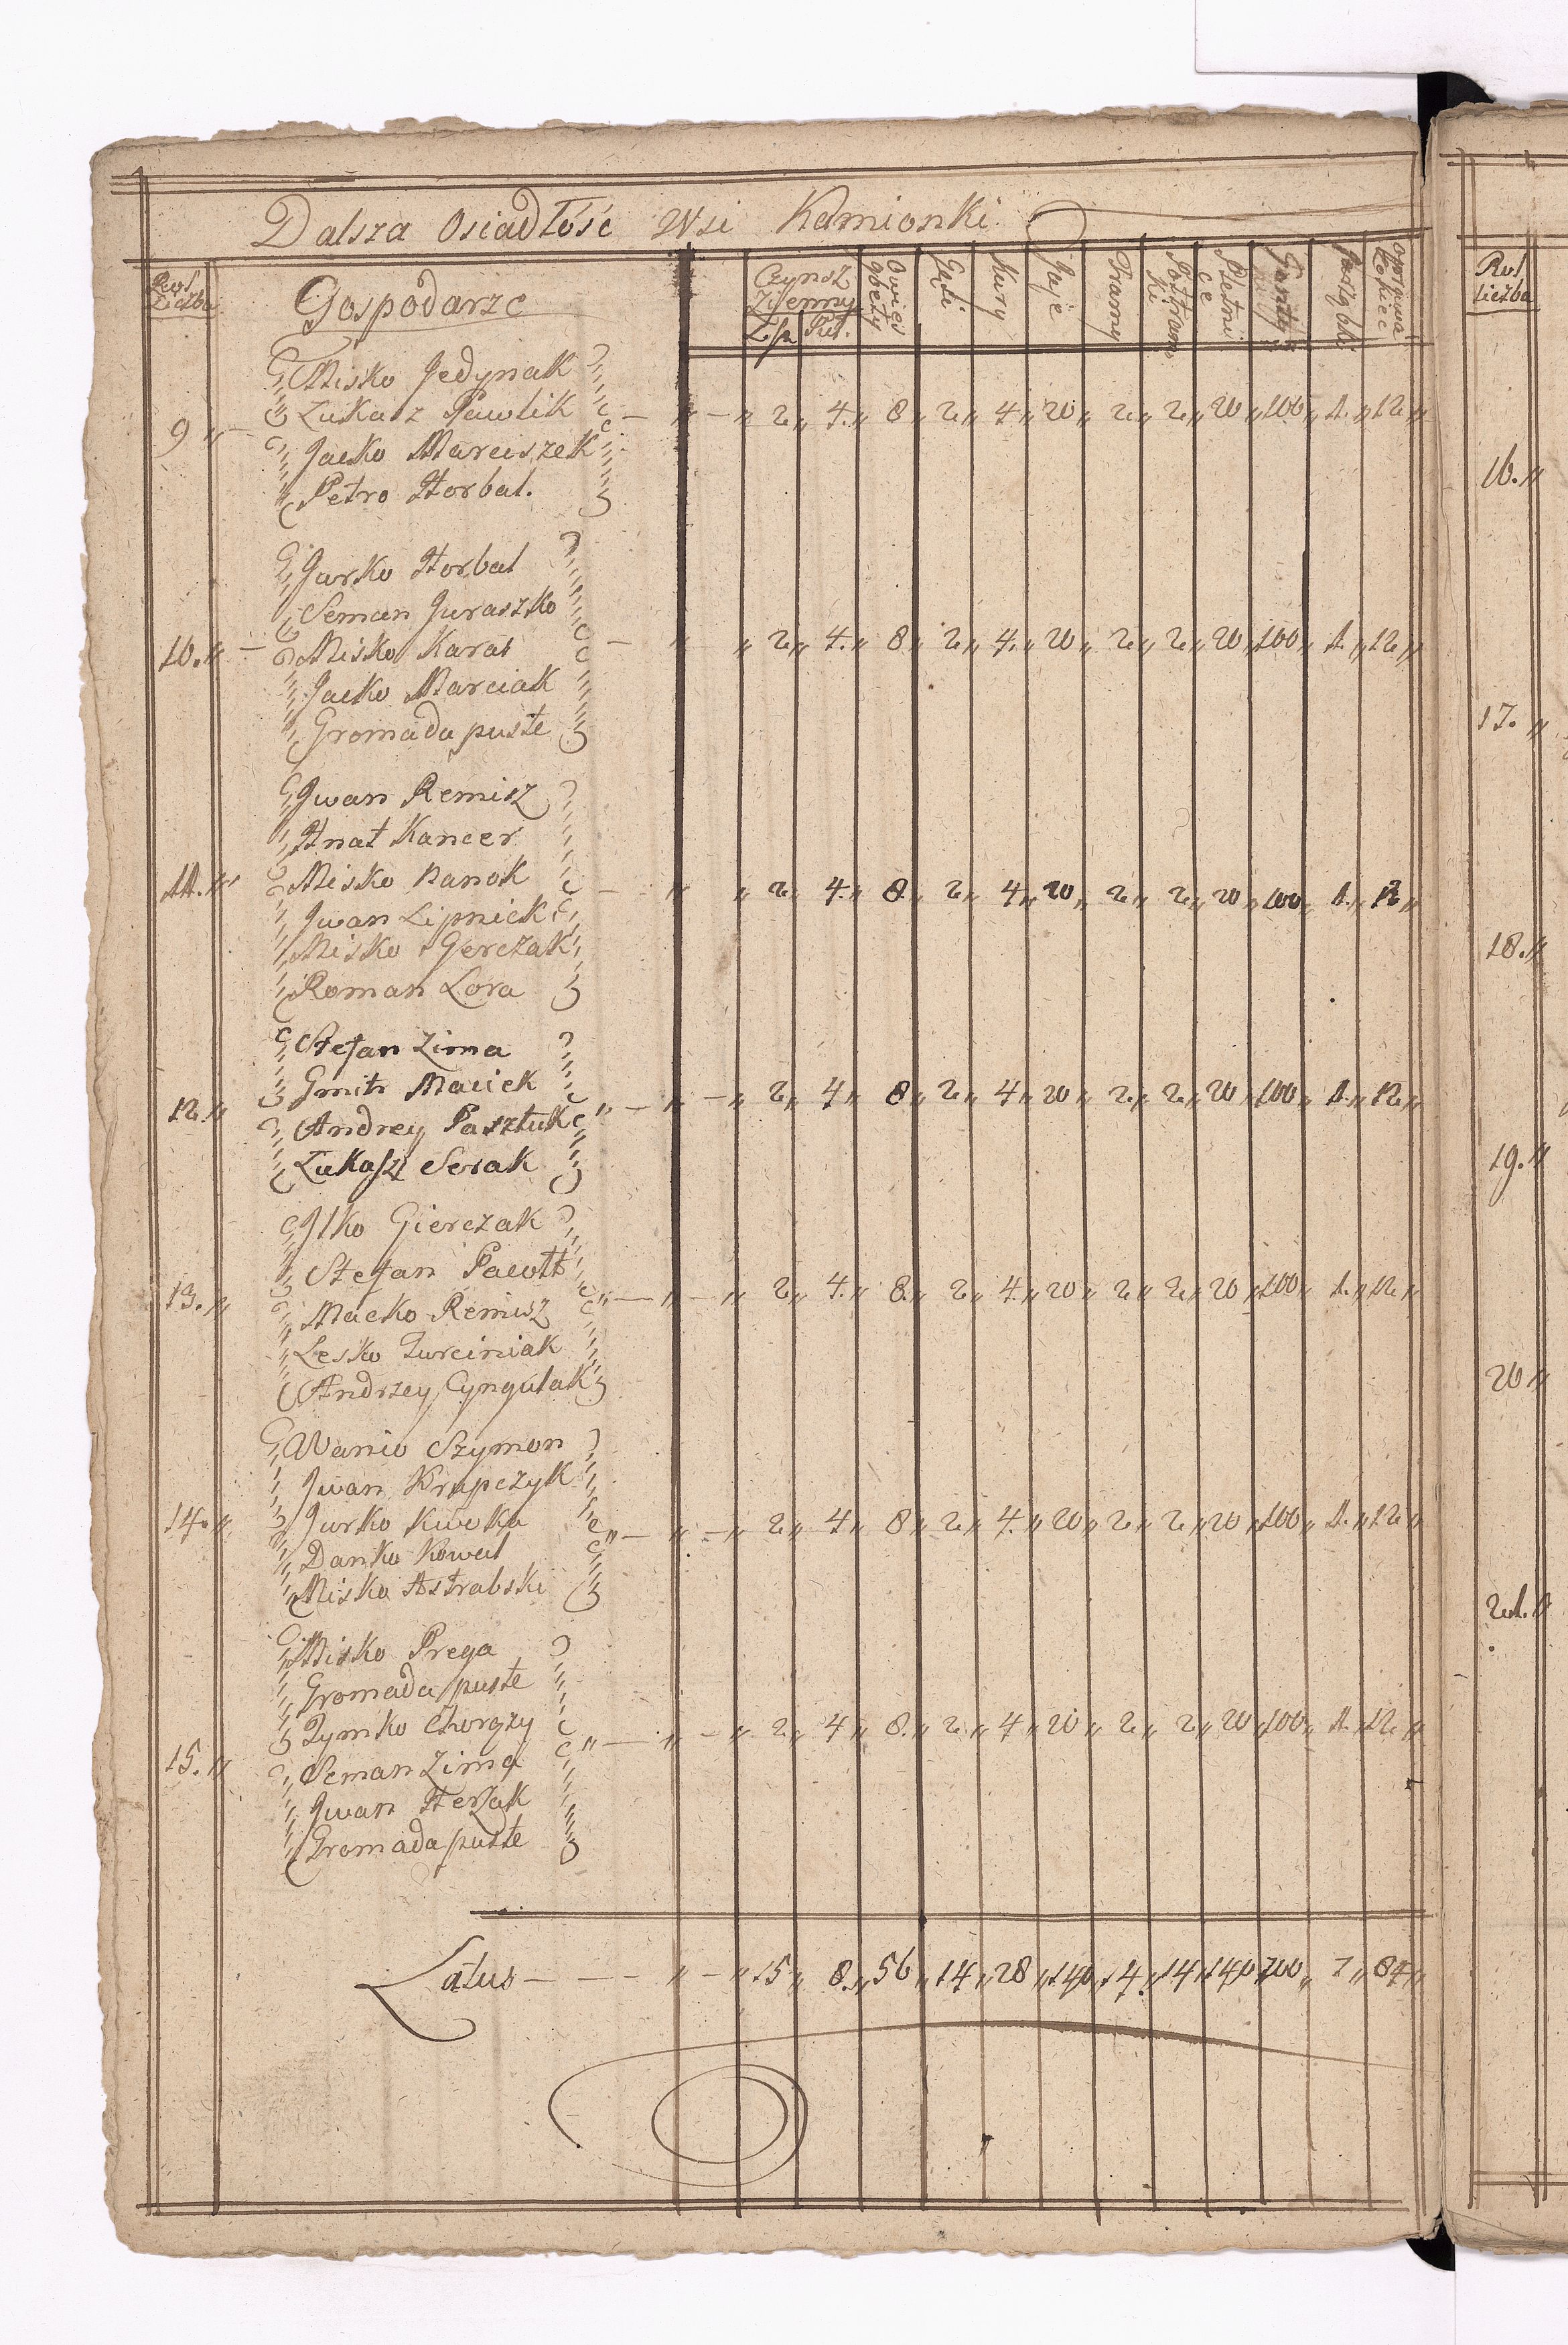 Dalsza Osiadłość Wsi Kamionki
Rol Liczba Gospodarze Czynsz Zięmny Złp. Pul. Owies obcity Gęsi Kury Jaje Pramy Postram ki Pletni ce
Misko Jedynak
9 Łukasz Pawlik 2 4 8 2 4 20 2 2 20 100 1 12
Jacko Marciszek
Petro Horbal.
Jurko Horbal
Seman Juraszko
10. Misko Karas 2 4 8 2 4 20 2 2 20 100 1 12
Jacko Marciak
Gromada puste
Jwan Remisz
Hnat Kancer
11. Misko Nanok 2 4 8 2 4 20 2 2 20 100 1 12
Jwan Lipnicki
Misko Gerczak
Roman Lora
Stefan Zima
Gmitr Maciek
12. Andrey Pasztuk 2 4 8 2 4 20 2 2 20 100 1 12
Łukasz Serak
Jlko Gierczak
Stefan
13. Macko Remisz 2 4 8 2 4 20 2 2 20 100 1 12
Lesko Turciniak
Andrzey Cyngulak
Wanio Szymon
Jwan Krupczyk
14. Jurko Kwoka 2 4 8 2 4 20 2 2 20 100 1 12
Danko Kowal
Misko Astrabski
Misko Prega
Gromada puste
Tymko Chorąży 2 4 8 2 4 20 2 2 20 100 1 12
15. Seman Zima
Jwan Herzak
Gromada puste
Latus 15 8 56 14 28 140 14 14 140 700 7 84
Rol liczba
16.
17.
18.
19.
20
21.